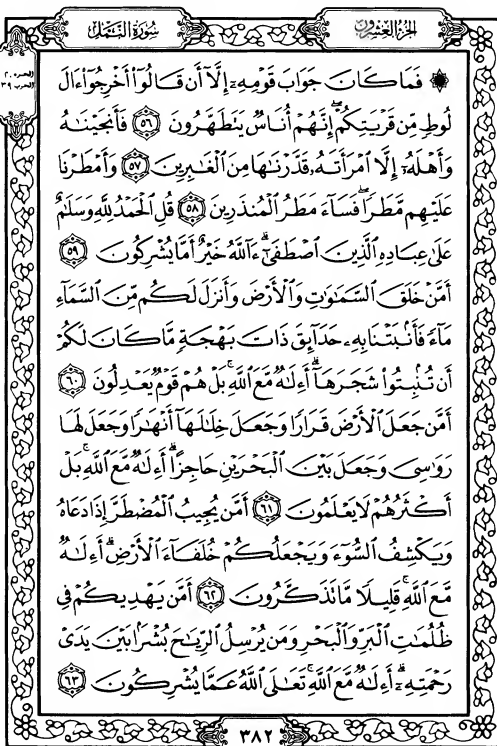 الجزء العشرون
سُورَةُ النَّمْلِ
الجزء ٢٠
الحزب ٣٩
۞ فَمَا كَانَ جَوَابَ قَوْمِهِۦٓ إِلَّآ أَن قَالُوٓا۟ أَخْرِجُوٓا۟ ءَالَ
لُوطٍ مِّن قَرْيَتِكُمْ ۖ إِنَّهُمْ أُنَاسٌ يَتَطَهَّرُونَ ٥٦ فَأَنجَيْنَـٰهُ
وَأَهْلَهُۥٓ إِلَّا ٱمْرَأَتَهُۥ قَدَّرْنَـٰهَا مِنَ ٱلْغَـٰبِرِينَ ٥٧ وَأَمْطَرْنَا
عَلَيْهِم مَّطَرًا ۖ فَسَآءَ مَطَرُ ٱلْمُنذَرِينَ ٥٨ قُلِ ٱلْحَمْدُ لِلَّهِ وَسَلَـٰمٌ
عَلَىٰ عِبَادِهِ ٱلَّذِينَ ٱصْطَفَىٰٓ ۗ ءَآللَّهُ خَيْرٌ أَمَّا يُشْرِكُونَ ٥٩
أَمَّنْ خَلَقَ ٱلسَّمَـٰوَٰتِ وَٱلْأَرْضَ وَأَنزَلَ لَكُم مِّنَ ٱلسَّمَآءِ
مَآءً فَأَنۢبَتْنَا بِهِۦ حَدَآئِقَ ذَاتَ بَهْجَةٍ مَّا كَانَ لَكُمْ
أَن تُنۢبِتُوا۟ شَجَرَهَآ ۗ أَءِلَـٰهٌ مَّعَ ٱللَّهِ ۚ بَلْ هُمْ قَوْمٌ يَعْدِلُونَ ٦٠
أَمَّن جَعَلَ ٱلْأَرْضَ قَرَارًا وَجَعَلَ خِلَـٰلَهَآ أَنْهَـٰرًا وَجَعَلَ لَهَا
رَوَٰسِىَ وَجَعَلَ بَيْنَ ٱلْبَحْرَيْنِ حَاجِزًا ۗ أَءِلَـٰهٌ مَّعَ ٱللَّهِ ۚ بَلْ
أَكْثَرُهُمْ لَا يَعْلَمُونَ ٦١ أَمَّن يُجِيبُ ٱلْمُضْطَرَّ إِذَا دَعَاهُ
وَيَكْشِفُ ٱلسُّوٓءَ وَيَجْعَلُكُمْ خُلَفَآءَ ٱلْأَرْضِ ۗ أَءِلَـٰهٌ
مَّعَ ٱللَّهِ ۚ قَلِيلًا مَّا تَذَكَّرُونَ ٦٢ أَمَّن يَهْدِيكُمْ فِى
ظُلُمَـٰتِ ٱلْبَرِّ وَٱلْبَحْرِ وَمَن يُرْسِلُ ٱلرِّيَـٰحَ بُشْرًۢا بَيْنَ يَدَىْ
رَحْمَتِهِۦٓ ۗ أَءِلَـٰهٌ مَّعَ ٱللَّهِ ۚ تَعَـٰلَى ٱللَّهُ عَمَّا يُشْرِكُونَ ٦٣
٣٨٢